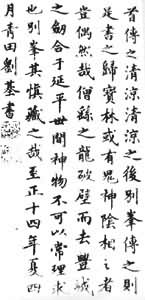 首傳之清涼清涼之後別峯傳之則
是之歸寶林或有鬼神陰相之者
豈偶然哉僧繇之龍破壁而去豐城
之劒合于延平世間神物不可以常理求
也別峯其慎藏之哉至正十四年夏四
月青田劉基書